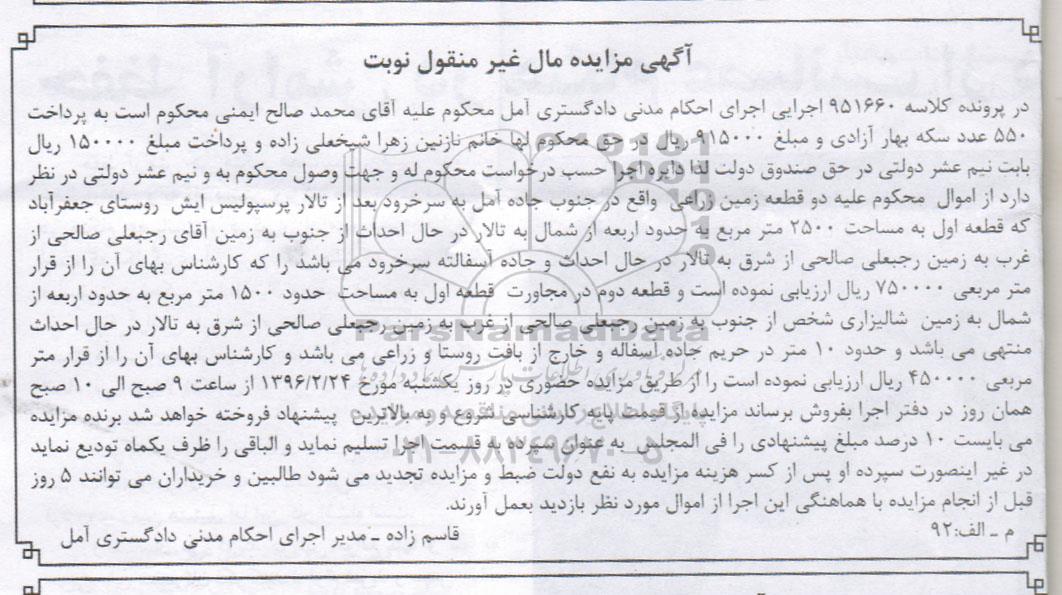 آگهی مزایده مال غیر منقول نوبت
در پرونده کلاسه ۹۵۱۶۶۰ اجرایی اجرای احکام مدنی دادگستری آمل محکوم علیه آقای محمد صالح ایمنی محکوم است به پرداخت
۵۵۰ عدد سکه بهار آزادی و مبلغ ۹۱۵۰۰۰ ریال در حق محکوم لها خانم نازنین زهرا شیخعلی زاده و پرداخت مبلغ ۱۵۰۰۰۰ ریال
بابت نیم عشر دولتی در حق صندوق دولت لذا دایره اجرا حسب درخواست محکوم له و جهت وصول محکوم به و نیم عشر دولتی در نظر
دارد از اموال محکوم علیه دو قطعه زمین زراعی واقع در جنوب جاده آمل به سرخرود بعد از تالار پرسپولیس ایش روستای جعفرآباد
که قطعه اول به مساحت ۲۵۰۰ متر مربع به حدود اربعه از شمال به تالار در حال احداث از جنوب به زمین آقای رجبعلی صالحی از
غرب به زمین رجبعلی صالحی از شرق به تالار در حال احداث و جاده آسفالته سرخرود می باشد را که کارشناس بهای آن را از قرار
متر مربعی ۷۵۰۰۰۰ ریال ارزیابی نموده است و قطعه دوم در مجاورت قطعه اول به مساحت حدود ۱۵۰۰ متر مربع به حدود اربعه از
شمال به زمین شالیزاری شخص از جنوب به زمین رجبعلی صالحی از غرب به زمین رجبعلی صالحی از شرق به تالار در حال احداث
منتهی می باشد و حدود ۱۰ متر در حریم جاده آسفاله و خارج از بافت روستا و زراعی می باشد و کارشناس بهای آن را از قرار متر
مربعی ۴۵۰۰۰۰ ریال ارزیابی نموده است را از طریق مزایده حضوری در روز یکشنبه مورخ ۱۳۹۶/۲/۲۴ از ساعت ۹ صبح الی ۱۰ صبح
همان روز در دفتر اجرا بفروش برساند مزایده از قیمت پایه کارشناسی شروع و به بالاترین پیشنهاد فروخته خواهد شد برنده مزایده
می بایست ۱۰ درصد مبلغ پیشنهادی را فی المجلس به عنوان سپرده به قسمت اجرا تسلیم نماید و الباقی را ظرف یکماه تودیع نماید
در غیر اینصورت سپرده او پس از کسر هزینه مزایده به نفع دولت ضبط و مزایده تجدید می شود طالبین و خریداران می توانند ۵ روز
قبل از انجام مزایده با هماهنگی این اجرا از اموال مورد نظر بازدید بعمل آورند.
م ـ الف:۹۲
قاسم زاده ـ مدیر اجرای احکام مدنی دادگستری آمل
ParsNamadData
۰۲۱-۸۸۳۴۹۶۷۰-۵